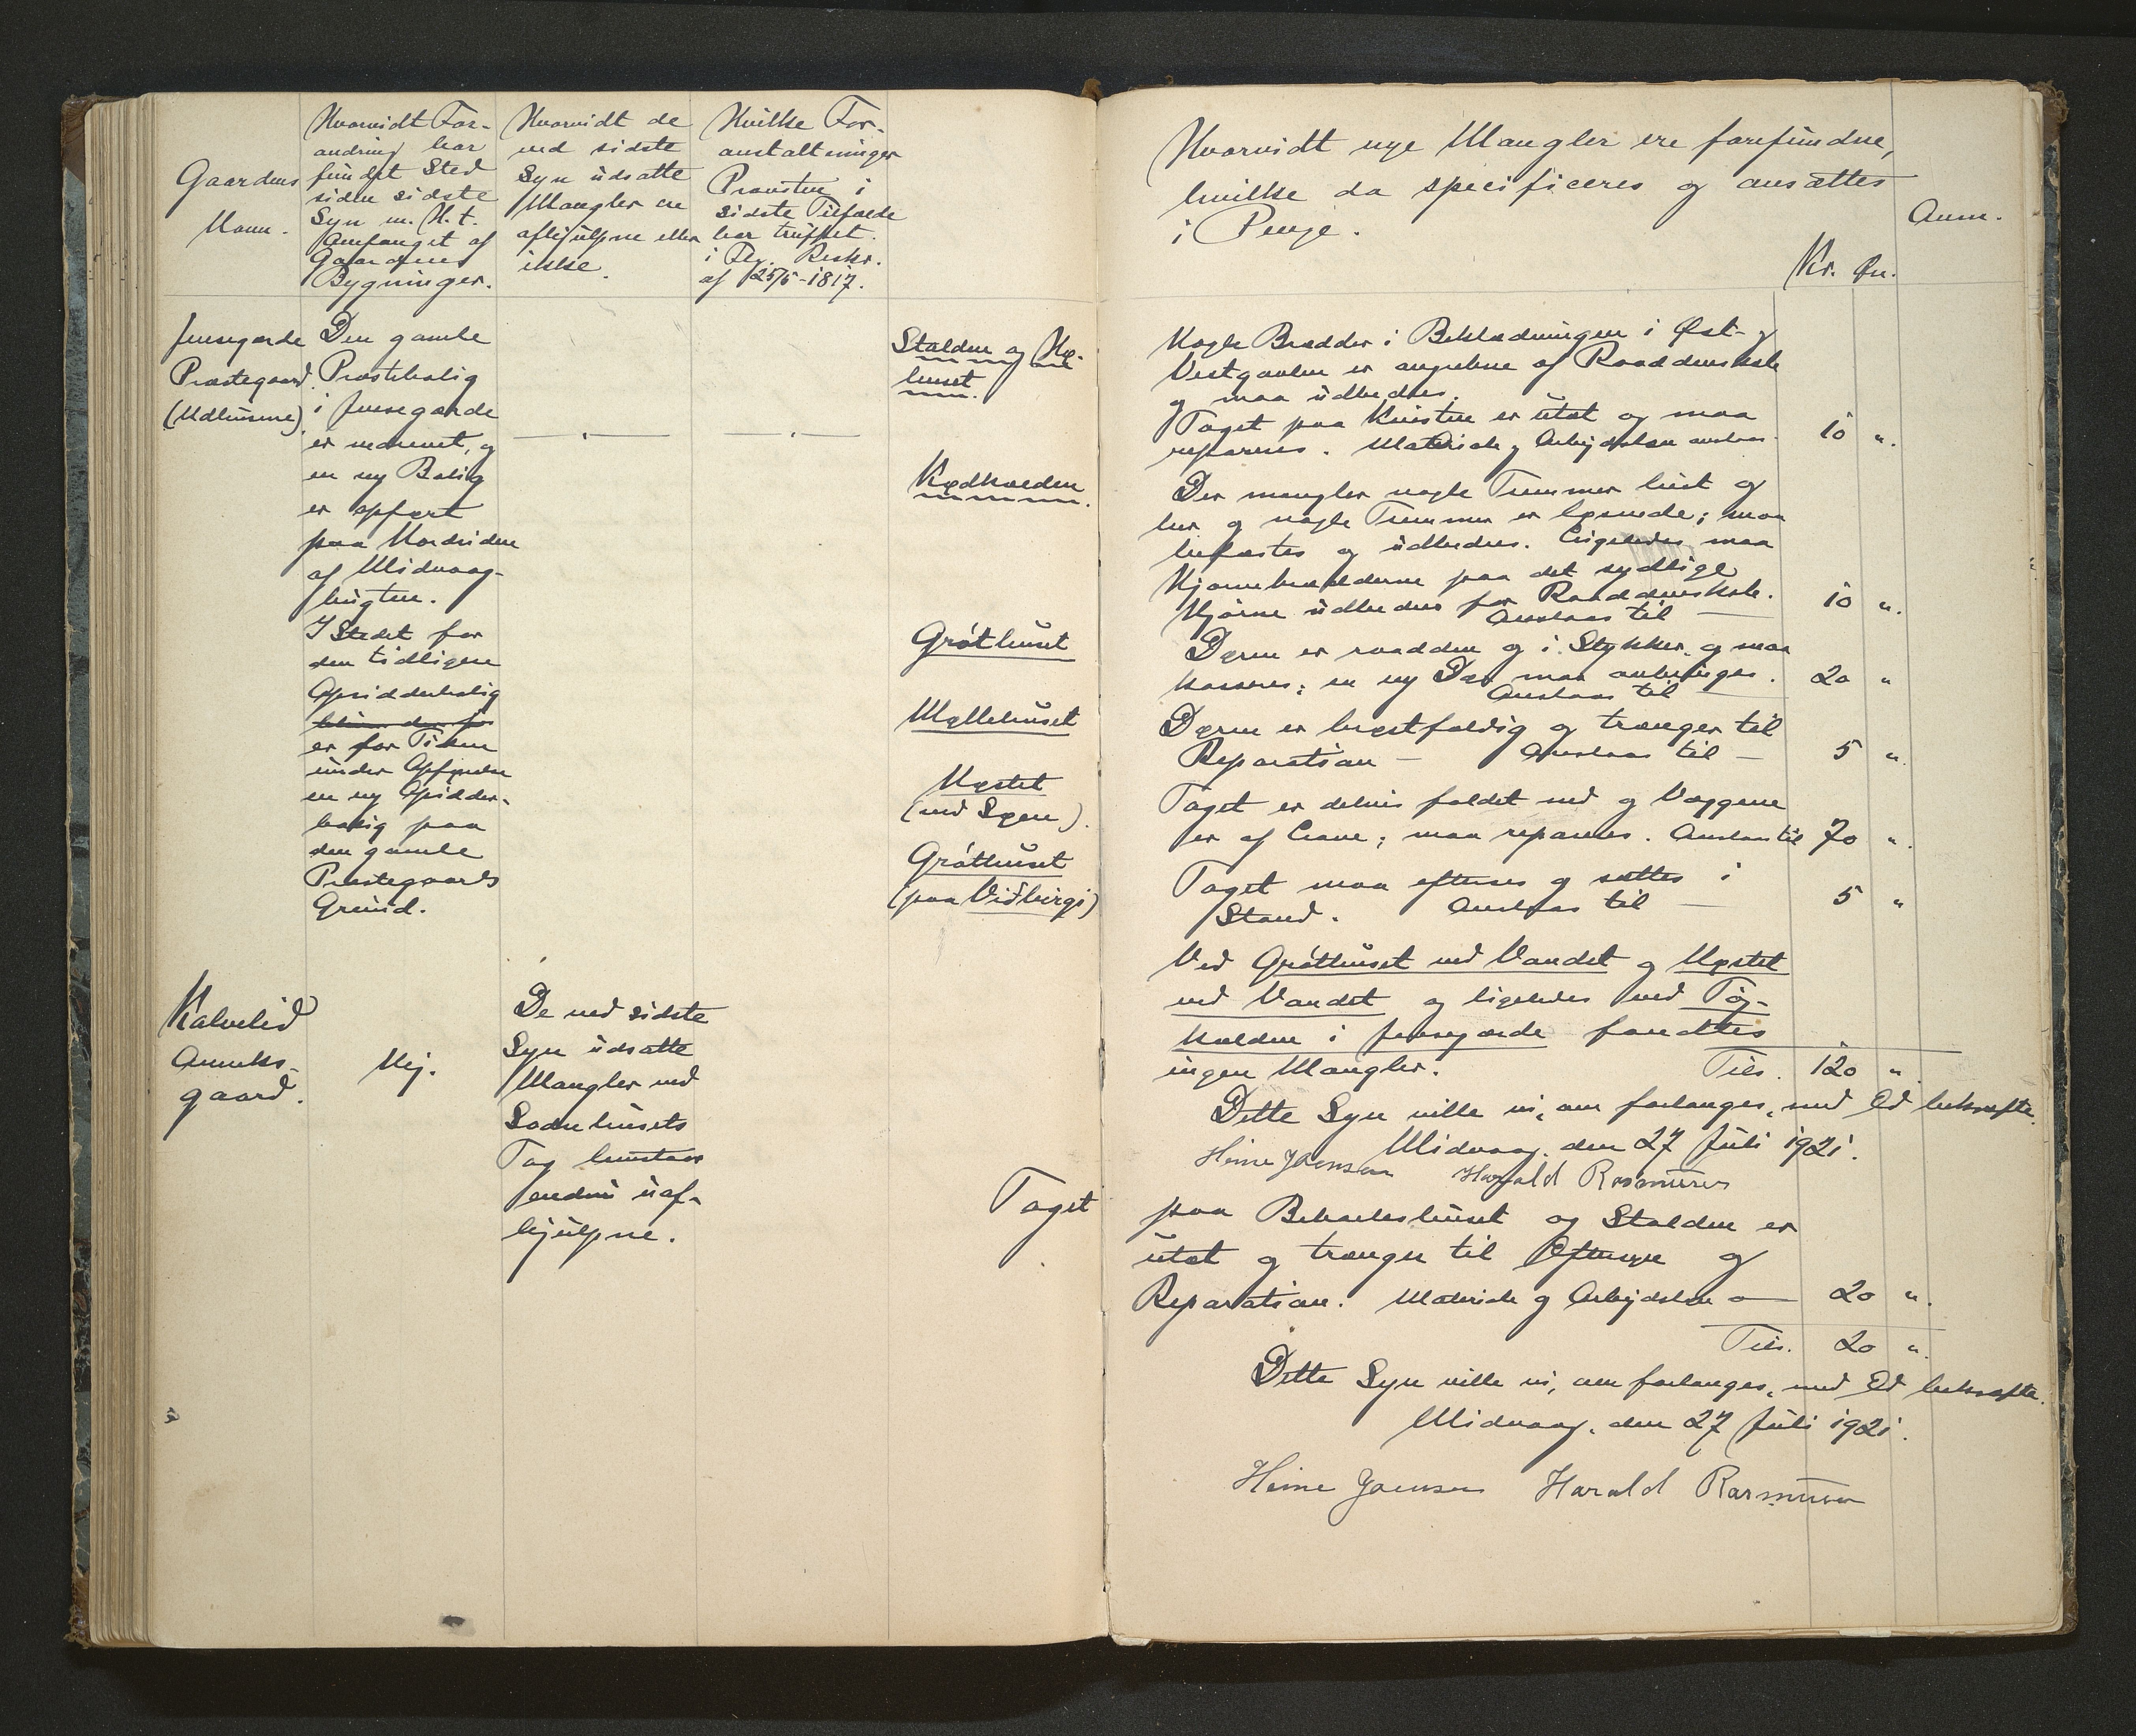 Gaardens
Navn.
Hvorvidt For-
andring har
fundet Sted
siden sidste
Syn m. H. t.
Omfanget af
Gaardens
Bygninger.
Hvorvidt de
ved sidste
Syn udsatte
Mangler ere
afhjulpne eller
ikke.
Hvilke For-
anstaltninger
Provsten i
sidste Tilfælde
har truffet.
i Flg. Reskr.
af 25/5-1817.
Jensegærde
Præstegaard.
(Udhusene)
Den gamle
Præstebolig
i Jensegærde
er nedrevet, og
en ny Bolig
er opført
paa Nordsiden
af Midvaag-
bugten.
I Stedet for
den tidligere
Opsidderbolig
er for Tiden
under Opførelse
en ny Opsidder-
bolig paa
den gamle
Præstegaards
Grund.
Stalden og Hø-
huset.
Kødhjalden.
Gróthuset
Møllehuset
Nøstet
(ved Søen).
Gróthuset
(paa Viðbirgi)
Kalvelid
Anneks-
gaard.
Nej.
De ved sidste
Syn udsatte
Mangler ved
Sodnhusets
Tag henstaar
endnu uaf-
hjulpne.
Taget
Hvorvidt nye Mangler ere forefundne,
hvilke da specificeres og ansættes
i Penge.
Kr. Øre.
Anm.
Nogle Brædder i Beklædningen i Øst- og
Vestgavlen er angrebne af Raaddenskab
og maa udbedres.
Taget paa Kvisten er utæt og maa
repareres. Materiale og Arbejdsløn anslaas 10 "
Der mangler nogle Tremmer hist og
her og nogle Tremmer er løsnede; maa
befæstes og udbedres. Ligeledes maa
Hjørnebrædderne paa det sydlige
Hjørne udbedres for Raaddenskab.
Anslaas til — 10 "
Døren er raadden og i Stykker og maa
kasseres; en ny Dør maa anbringes.
Anslaas til — 20 "
Døren er brøstfældig og trænger til
Reparation — Anslaas til — 5 "
Taget er delvis faldet ned og Væggene
er af Lave; maa repareres. Anslaas til 70 "
Taget maa efterses og sættes i
Stand. Anslaas til — 5 "
Ved Gróthuset ved Vandet og Nøstet
ved Vandet og ligeledes ved Tög-
kolden i Jensegærde fandtes
ingen Mangler. Tils. 120 "
Dette Syn ville vi, om forlanges, med Ed bekræfte.
Midvaag, den 27 Juli 1921.
Heine Joensen Harald Rasmussen
paa Beboelseshuset og Stalden er
utæt og trænger til Eftersyn og
Reparation. Materiale og Arbejdsløn — 20 "
Tils. 20 "
Dette Syn ville vi, om forlanges, med Ed bekræfte.
Midvaag, den 27 Juli 1921.
Heine Joensen Harald Rasmussen